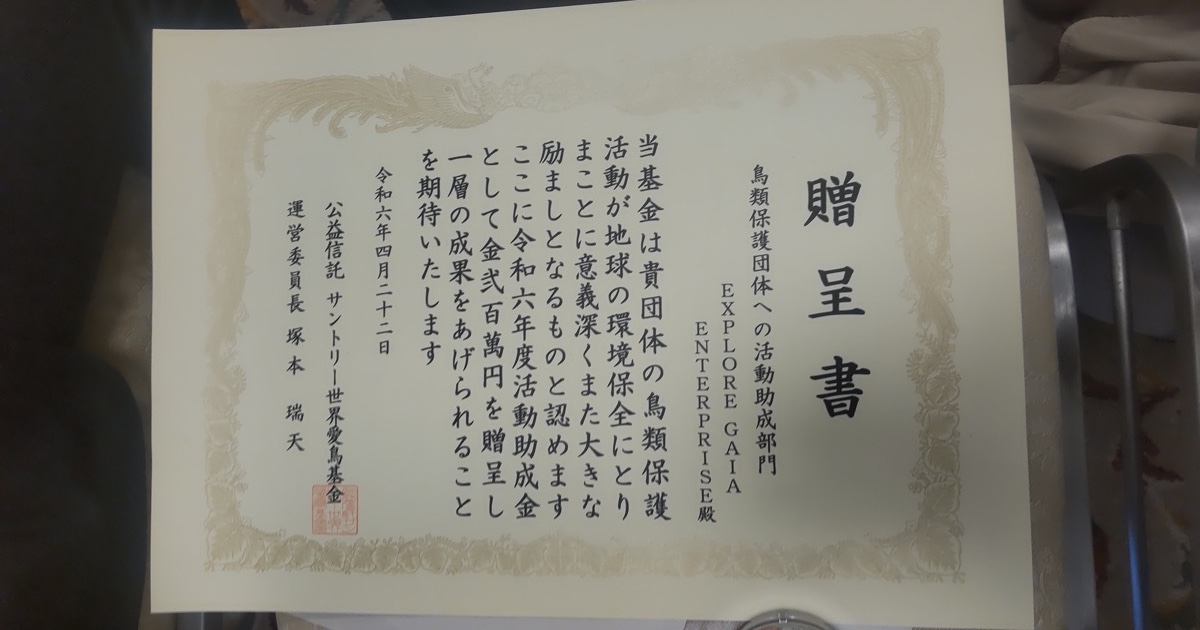 贈呈書
鳥類保護団体への活動助成部門
EXPLORE GAIA
ENTERPRISE殿
当基金は貴団体の鳥類保護
活動が地球の環境保全にとり
まことに意義深くまた大きな
励ましとなるものと認めます
ここに令和六年度活動助成金
として金弐百萬円を贈呈し
一層の成果をあげられること
を期待いたします
令和六年四月二十二日
公益信託 サントリー世界愛鳥基金
運営委員長 塚本 瑞天